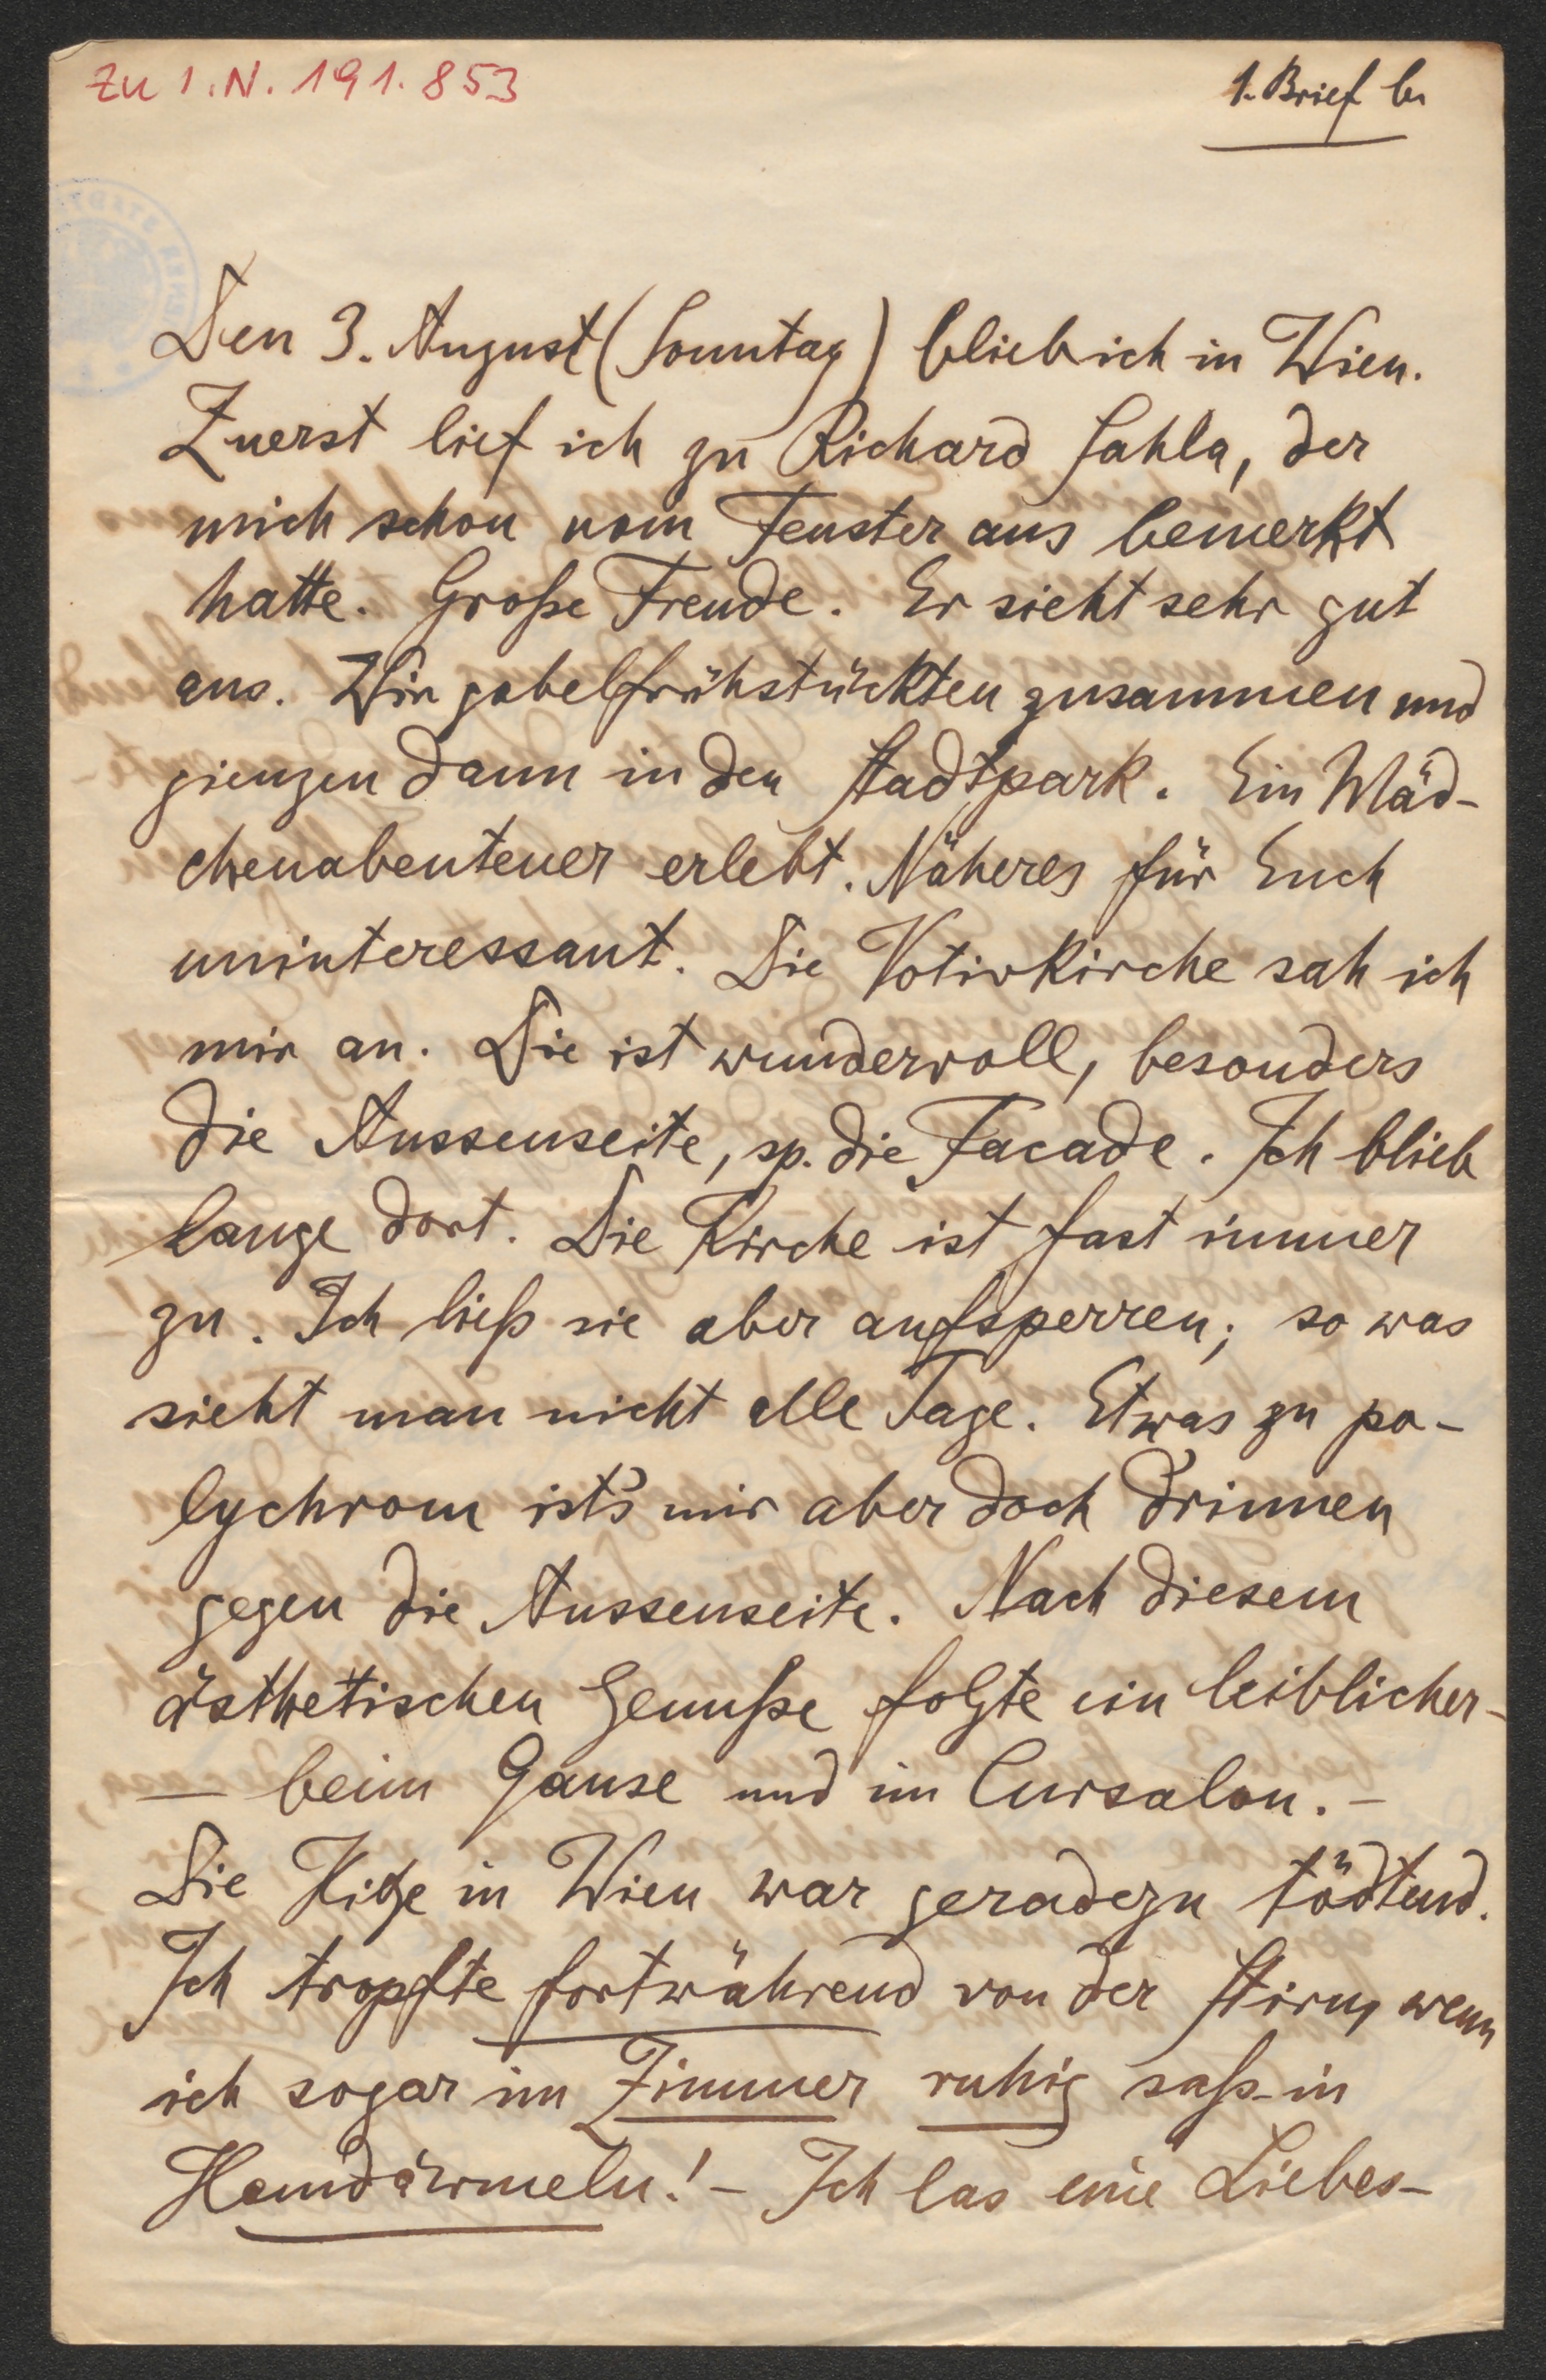 Zu I.N. 191.853
1. Brief b.
Den 3. August (Sonntag) blieb ich in Wien.
Zuerst lief ich zu Richard Sahla, der
mich schon vom Fenster aus bemerkt
hatte. Große Freude. Er sieht sehr gut
aus. Wir gabelfrühstückten zusammen und
giengen dann in den Stadtpark. Ein Mäd-
chenabenteuer erlebt. Näheres für Euch
uninteressant. Die Votivkirche sah ich
mir an. Die ist wundervoll, besonders
die Aussenseite, sp. die Facade. Ich blieb
lange dort. Die Kirche ist fast immer
zu. Ich ließ sie aber aufsperren; so was
sieht man nicht alle Tage. Etwas zu po-
lychrom ist's mir aber doch drinnen
gegen die Aussenseite. Nach diesem
ästhetischen Genuße folgte ein leiblicher-
— beim Gause und im Cursalon. –
Die Hitze in Wien war geradezu tödtend.
Ich tropfte fortwährend von der Stirn, wenn
ich sogar im Zimmer ruhig saß in
Hemdärmeln! – Ich las eine Liebes-